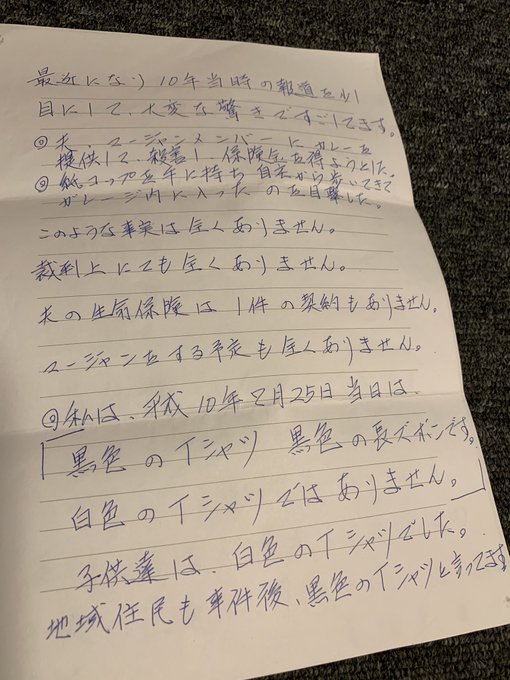 最近になり10年当時の報道を少し
目にして、大変な驚きですごしてます。
◎夫、マージャンメンバーにカレーを
提供して、殺害し、保険金を得ようとした。
◎紙コップを手に持ち自宅から歩いてきて
ガレージ内に入ったのを目撃した。
このような事実は全くありません。
裁判上にても全くありません。
夫の生命保険は1件の契約もありません。
マージャンをする予定も全くありません。
◎私は、平成10年7月25日当日は、
「黒色のTシャツ 黒色の長ズボンです。
白色のTシャツではありません。」
子供達は、白色のTシャツでした。
地域住民も事件後、黒色のTシャツと言ってます